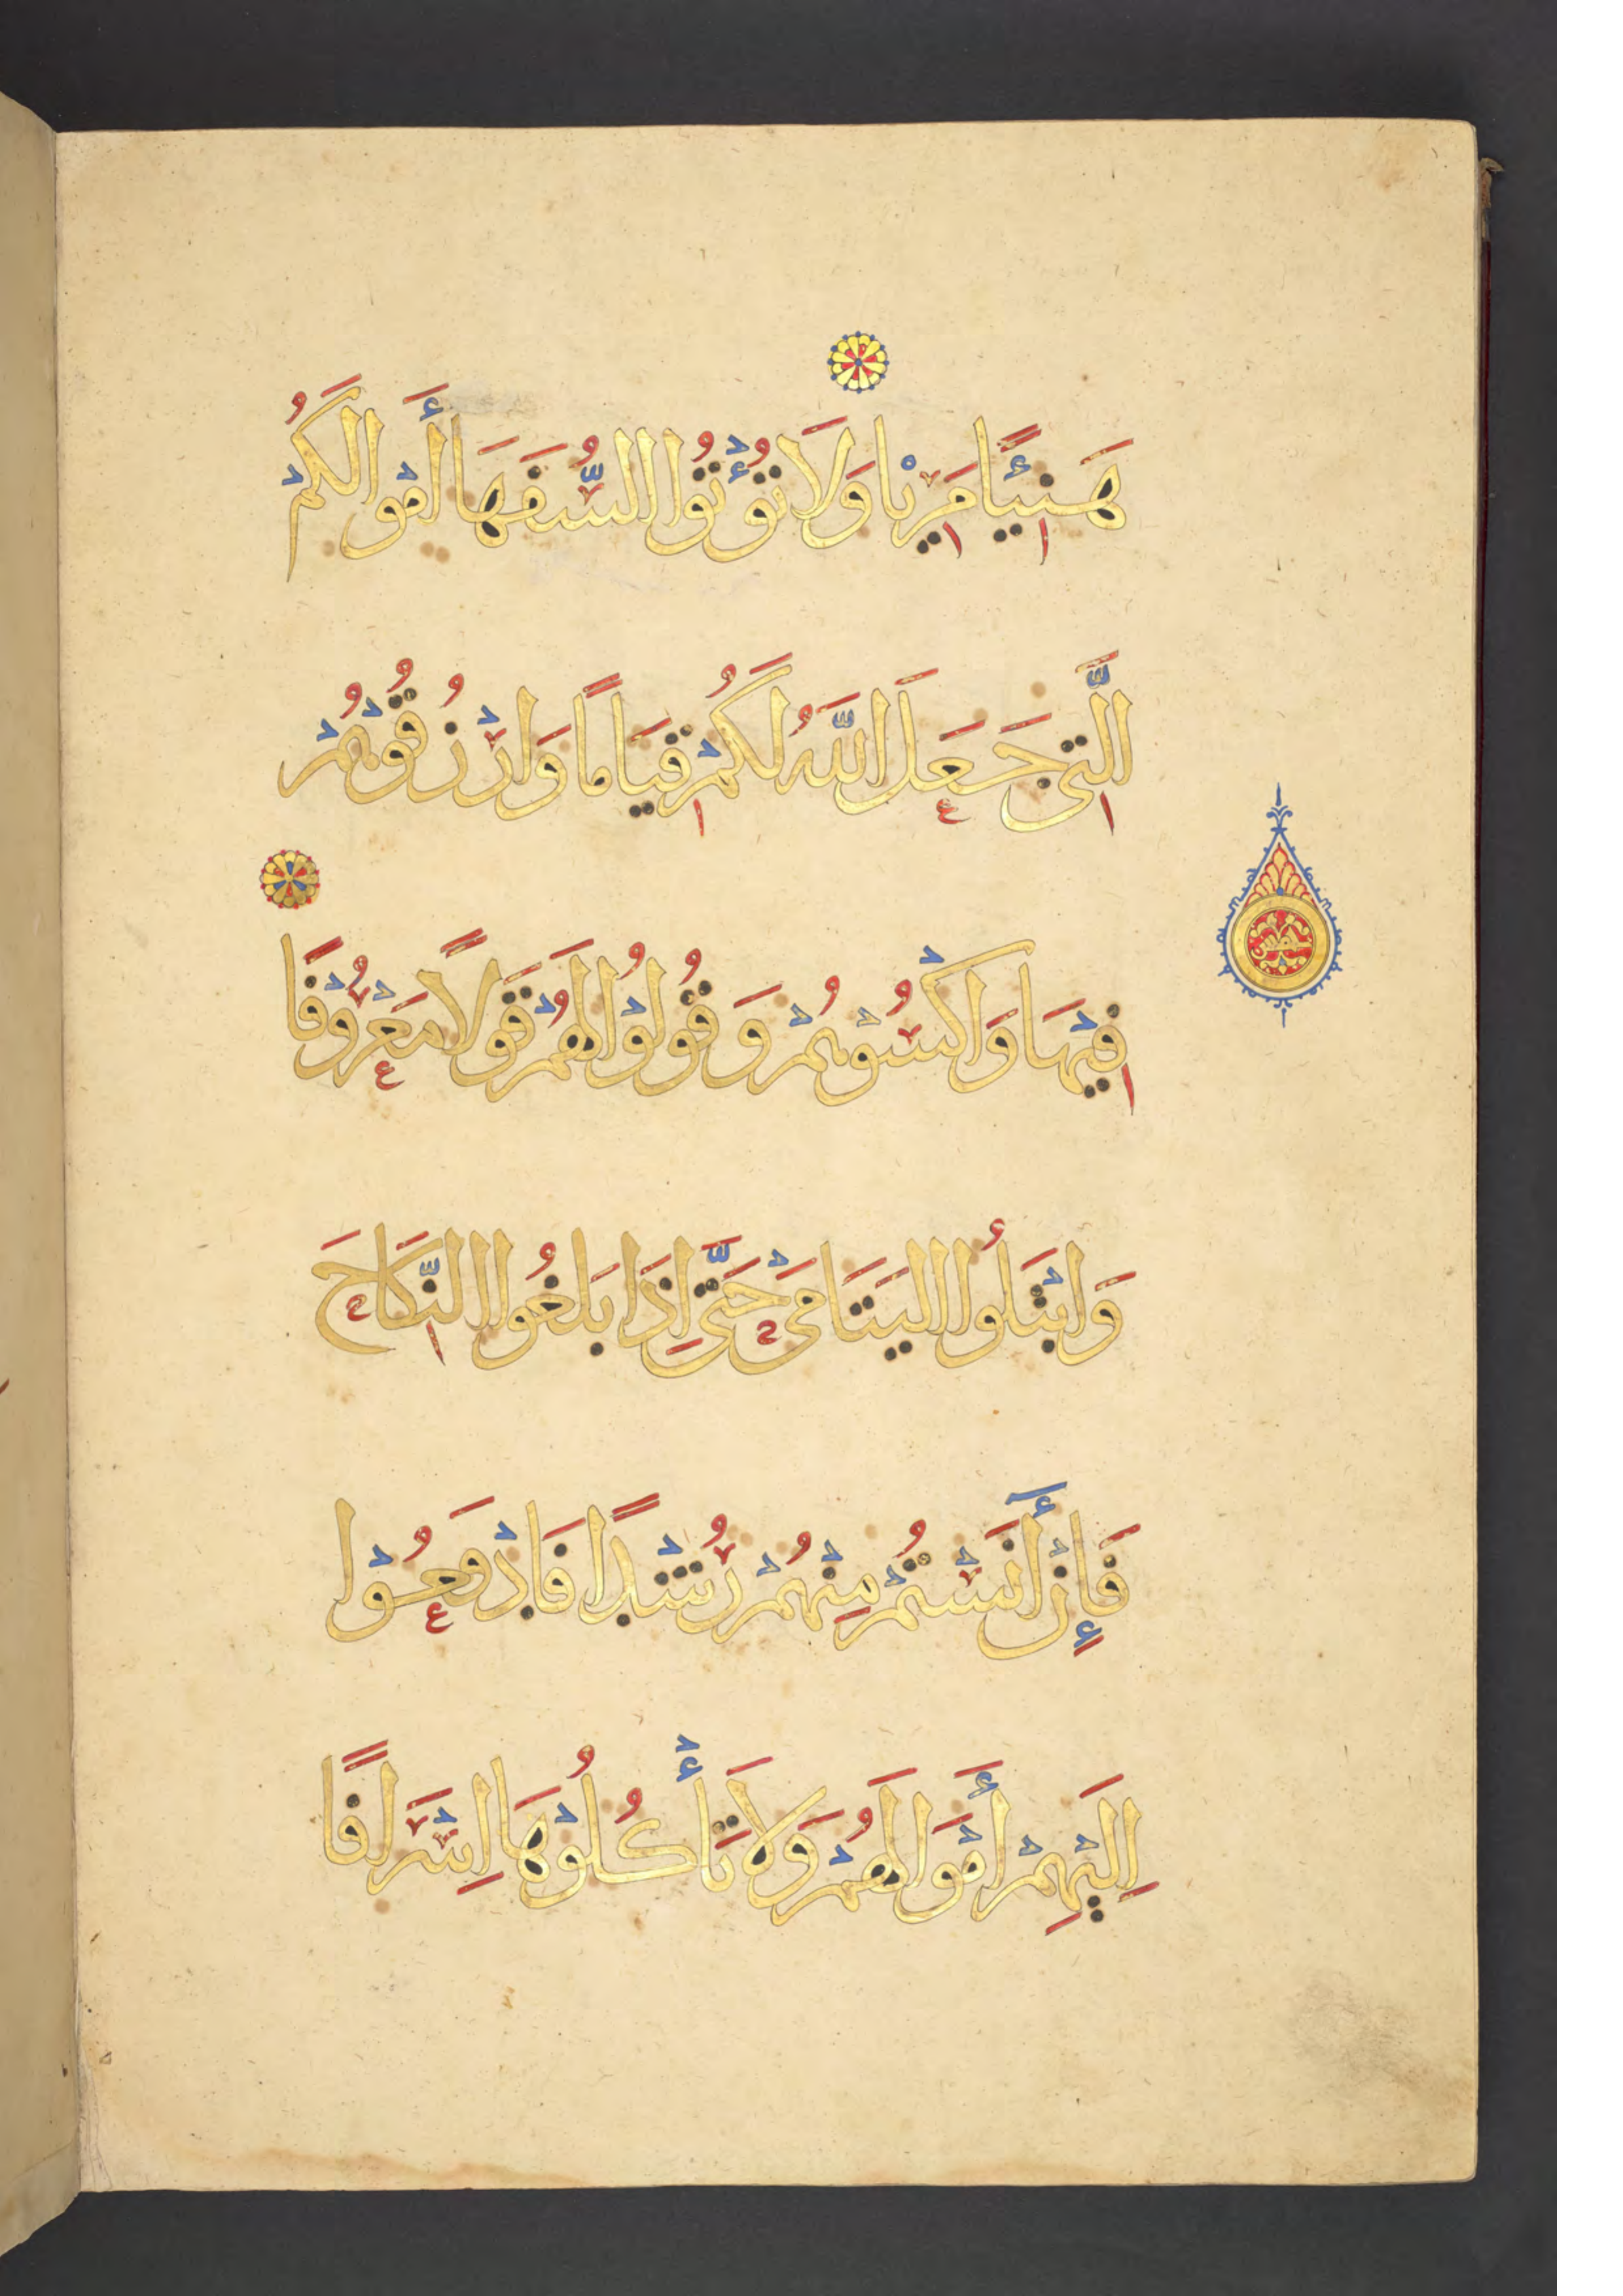 هَنِيئًا مَرِيْا وَلَا تُؤْتُوا السُّفَهَا أَمْوَالَكُمْ
الَّتِى جَعَلَ اللَّهُ لَكُمْ قِيَامًا وَارْزُقُوْهُمْ
فِيْهَا وَاكْسُوْهُمْ وَقُولُوْا لَهُمْ قَوْلًا مَعْرُوْفًا
وَابْتَلُوا الْيَتَامَىْ حَتَّى إِذَا بَلَغُوا النِّكَاحَ
فَإِنْ أَنَسْتُمْ مِنْهُمْ رُشْدًا فَادْفَعُوْا
اِلَيْهِمْ أَمْوَالَهُمْ وَلَا تَأْكُلُوْهَا اِسْرَافًا